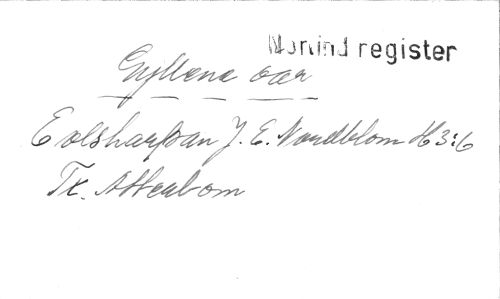 Norind register
Gyllene oar
Eolsharpan J. E. Nordblom H 3:6
Tx. Atterbom